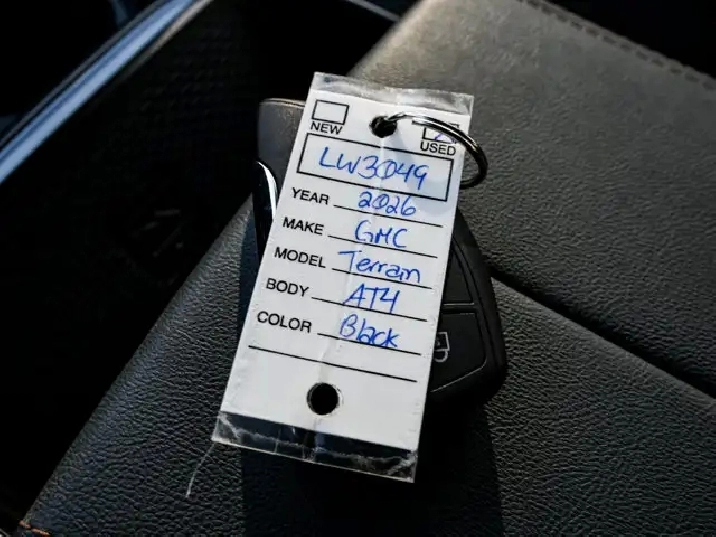 NEW
USED
LW3049
YEAR 2026
MAKE GMC
MODEL Terrain
BODY AT4
COLOR Black